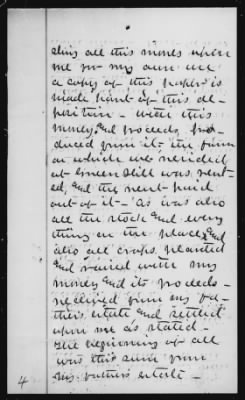 all this money upon
me for my own use
a copy of this paper is
made part of this de-
position - with this
money, and proceeds pro-
duced from it - the farm
on which we resided
at Green Hill was rent-
ed, and the rent paid
out of it - As was also
all the stock and every
thing on the place, and
also all crops planted
and raised with my
money and its proceeds -
received from my fa-
thers estate and settled
upon me as stated -
The beginning of all
was this sum from
my father's estate -
4